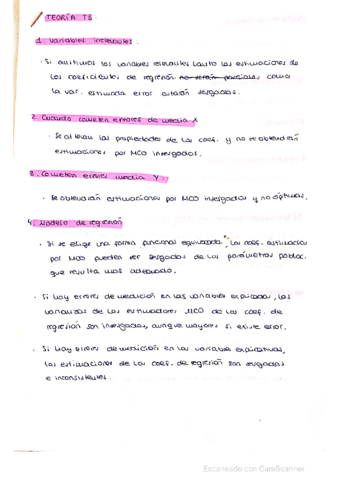 TEORÍA T8
1. Variables irrelevantes:
· Si omitimos las variables relevantes tanto las estimaciones de
los coeficientes de regresión no serán parciales, como
la var. estimada error estarán sesgadas.
2. Cuando cometen errores de media X
· Se alteran las propiedades de los coef. y no se obtendrán
estimaciones por MCO insesgados.
3. Cometen errores media Y:
· Se obtendrán estimaciones por MCO insesgados y no óptimas.
4. Modelo de regresión
· Si se elige una forma funcional equivocada, los coef. estimados
por MCO pueden ser sesgados de los parámetros poblac.
que resulta más adecuado.
· Si hay errores de medición en las variables explicadas, las
varianzas de los estimadores MCO de los coef. de
regresión son insesgados, aunque mayores si existe error.
· Si hay errores de medición en las variables explicativas,
las estimaciones de los coef. de regresión son sesgadas
e inconsistentes.
Escaneado con CamScanner